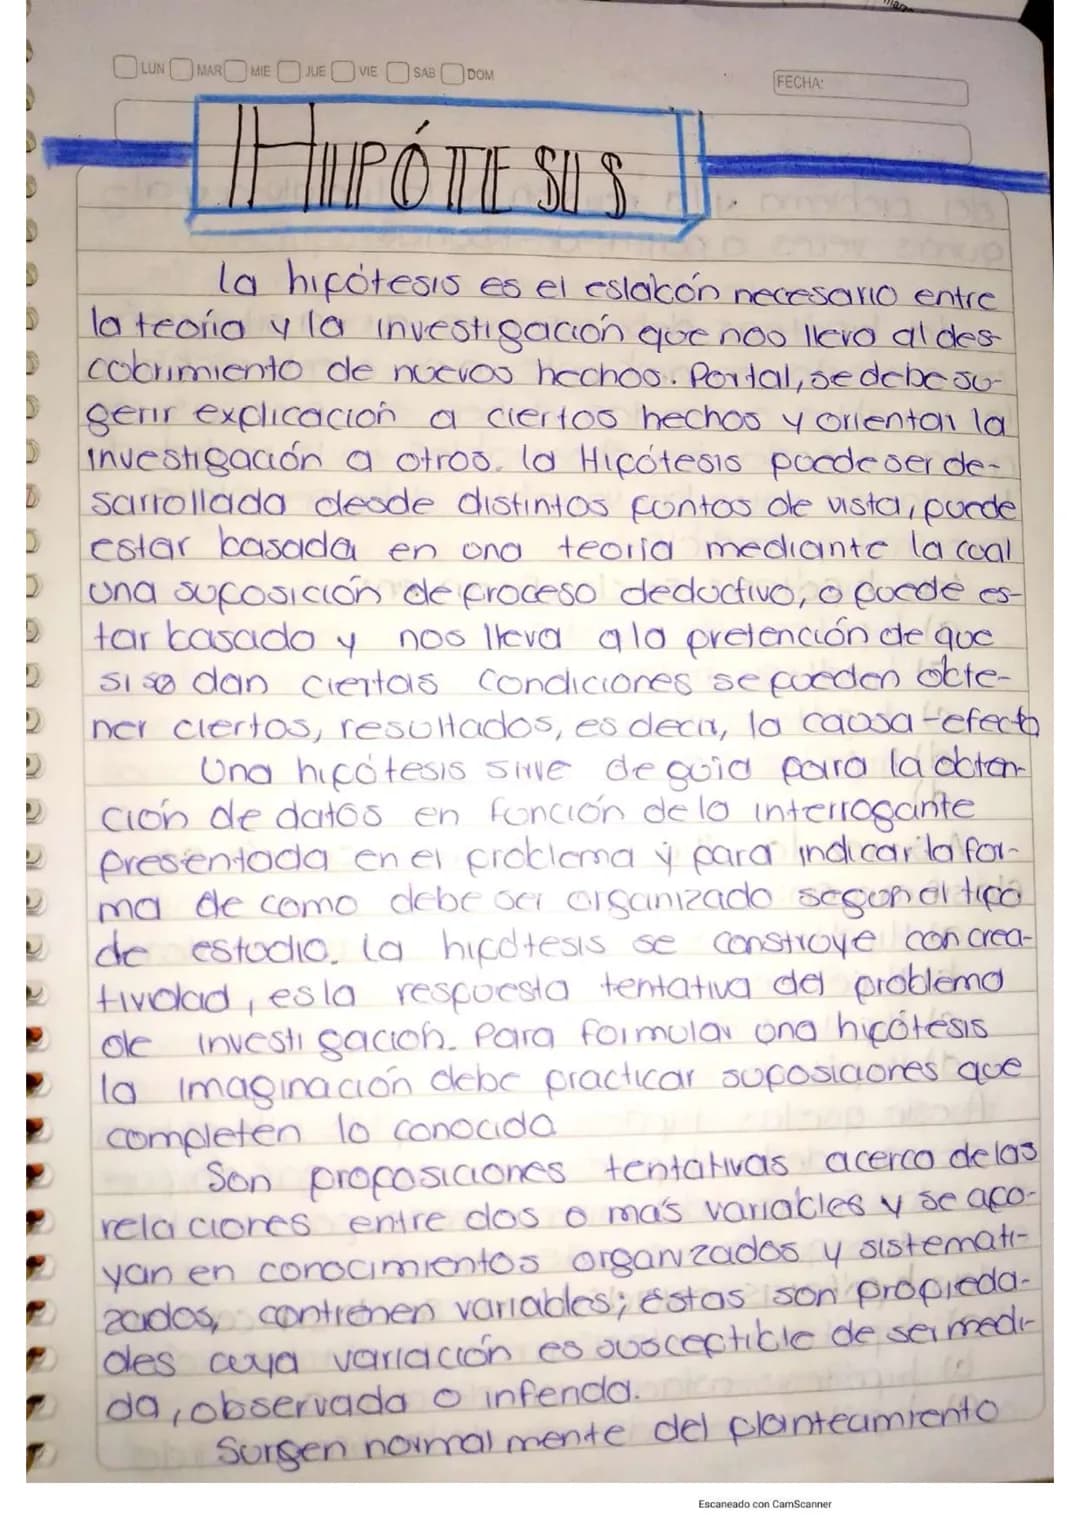 LUN MAR MIE JUE VIE SAB DOM
FECHA:
HIPÓTESIS
la hipótesis es el eslabón necesario entre
la teoria y la investigación que nos lleva al des-
cubrimiento de nuevos hechos. Portal, se debe su-
gerir explicación a ciertos hechos y orientar la
investigación a otros. la Hipótesis puede ser de-
sarrollada desde distintos puntos de vista, puede
estar basada en una teoria mediante la cual
una suposición de proceso deductivo, o puede es-
tar basado y nos lleva a la pretención de que
si se dan ciertas condiciones se pueden obte-
ner ciertos, resultados, es decir, la causa-efecto
Una hipótesis sirve de guia para la obten-
ción de datos en función de la interrogante
presentada en el problema y para indicar la for-
ma de como debe ser organizado segun el tipo
de estudio. la hipótesis se construye con crea-
tividad, es la respuesta tentativa del problema
de investigación. Para formular una hipótesis
la imaginación debe practicar suposiciones que
completen lo conocido
Son proposiciones tentativas acerca de las
relaciones entre dos o más variables y se apo-
yan en conocimientos organizados y sistemati-
zados, contienen variables; éstas son propieda-
des cuya variación es susceptible de ser medi-
da, observada o inferida.
Surgen normalmente del planteamiento
Escaneado con CamScanner